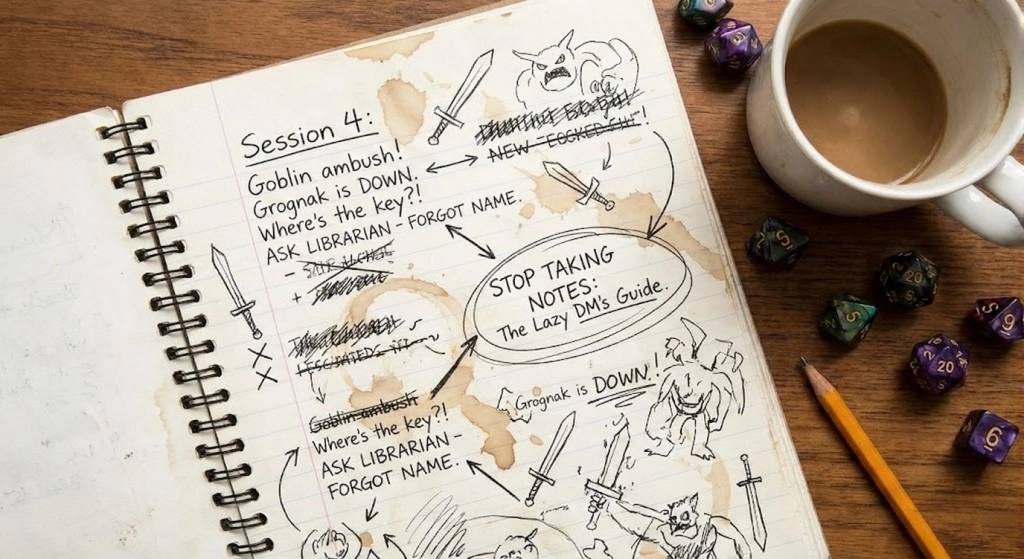 Session 4:
Goblin ambush!
Grognak is DOWN.
Where's the key?!
ASK LIBRARIAN - FORGOT NAME.
NEW
STOP TAKING
NOTES:
The Lazy DM's Guide.
Goblin ambush
Where's the key?!
ASK LIBRARIAN -
FORGOT NAME.
Grognak is DOWN!
20
6